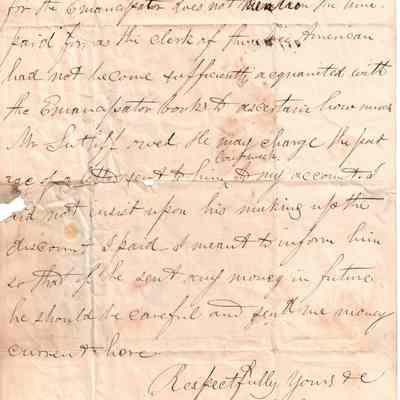 for the Emancipator does not mention the time
paid for as the clerk of the American
had not become sufficiently acquainted with
the Emancipator books to ascertain how much
Mr Sutliff owed He may charge the post
age of a letter sent to him to my account I
did not insist upon his making up the
discount I paid. I meant to inform him
so that if he sent any money in future
he should be careful and send me money
current here
Respectfully Yours &c